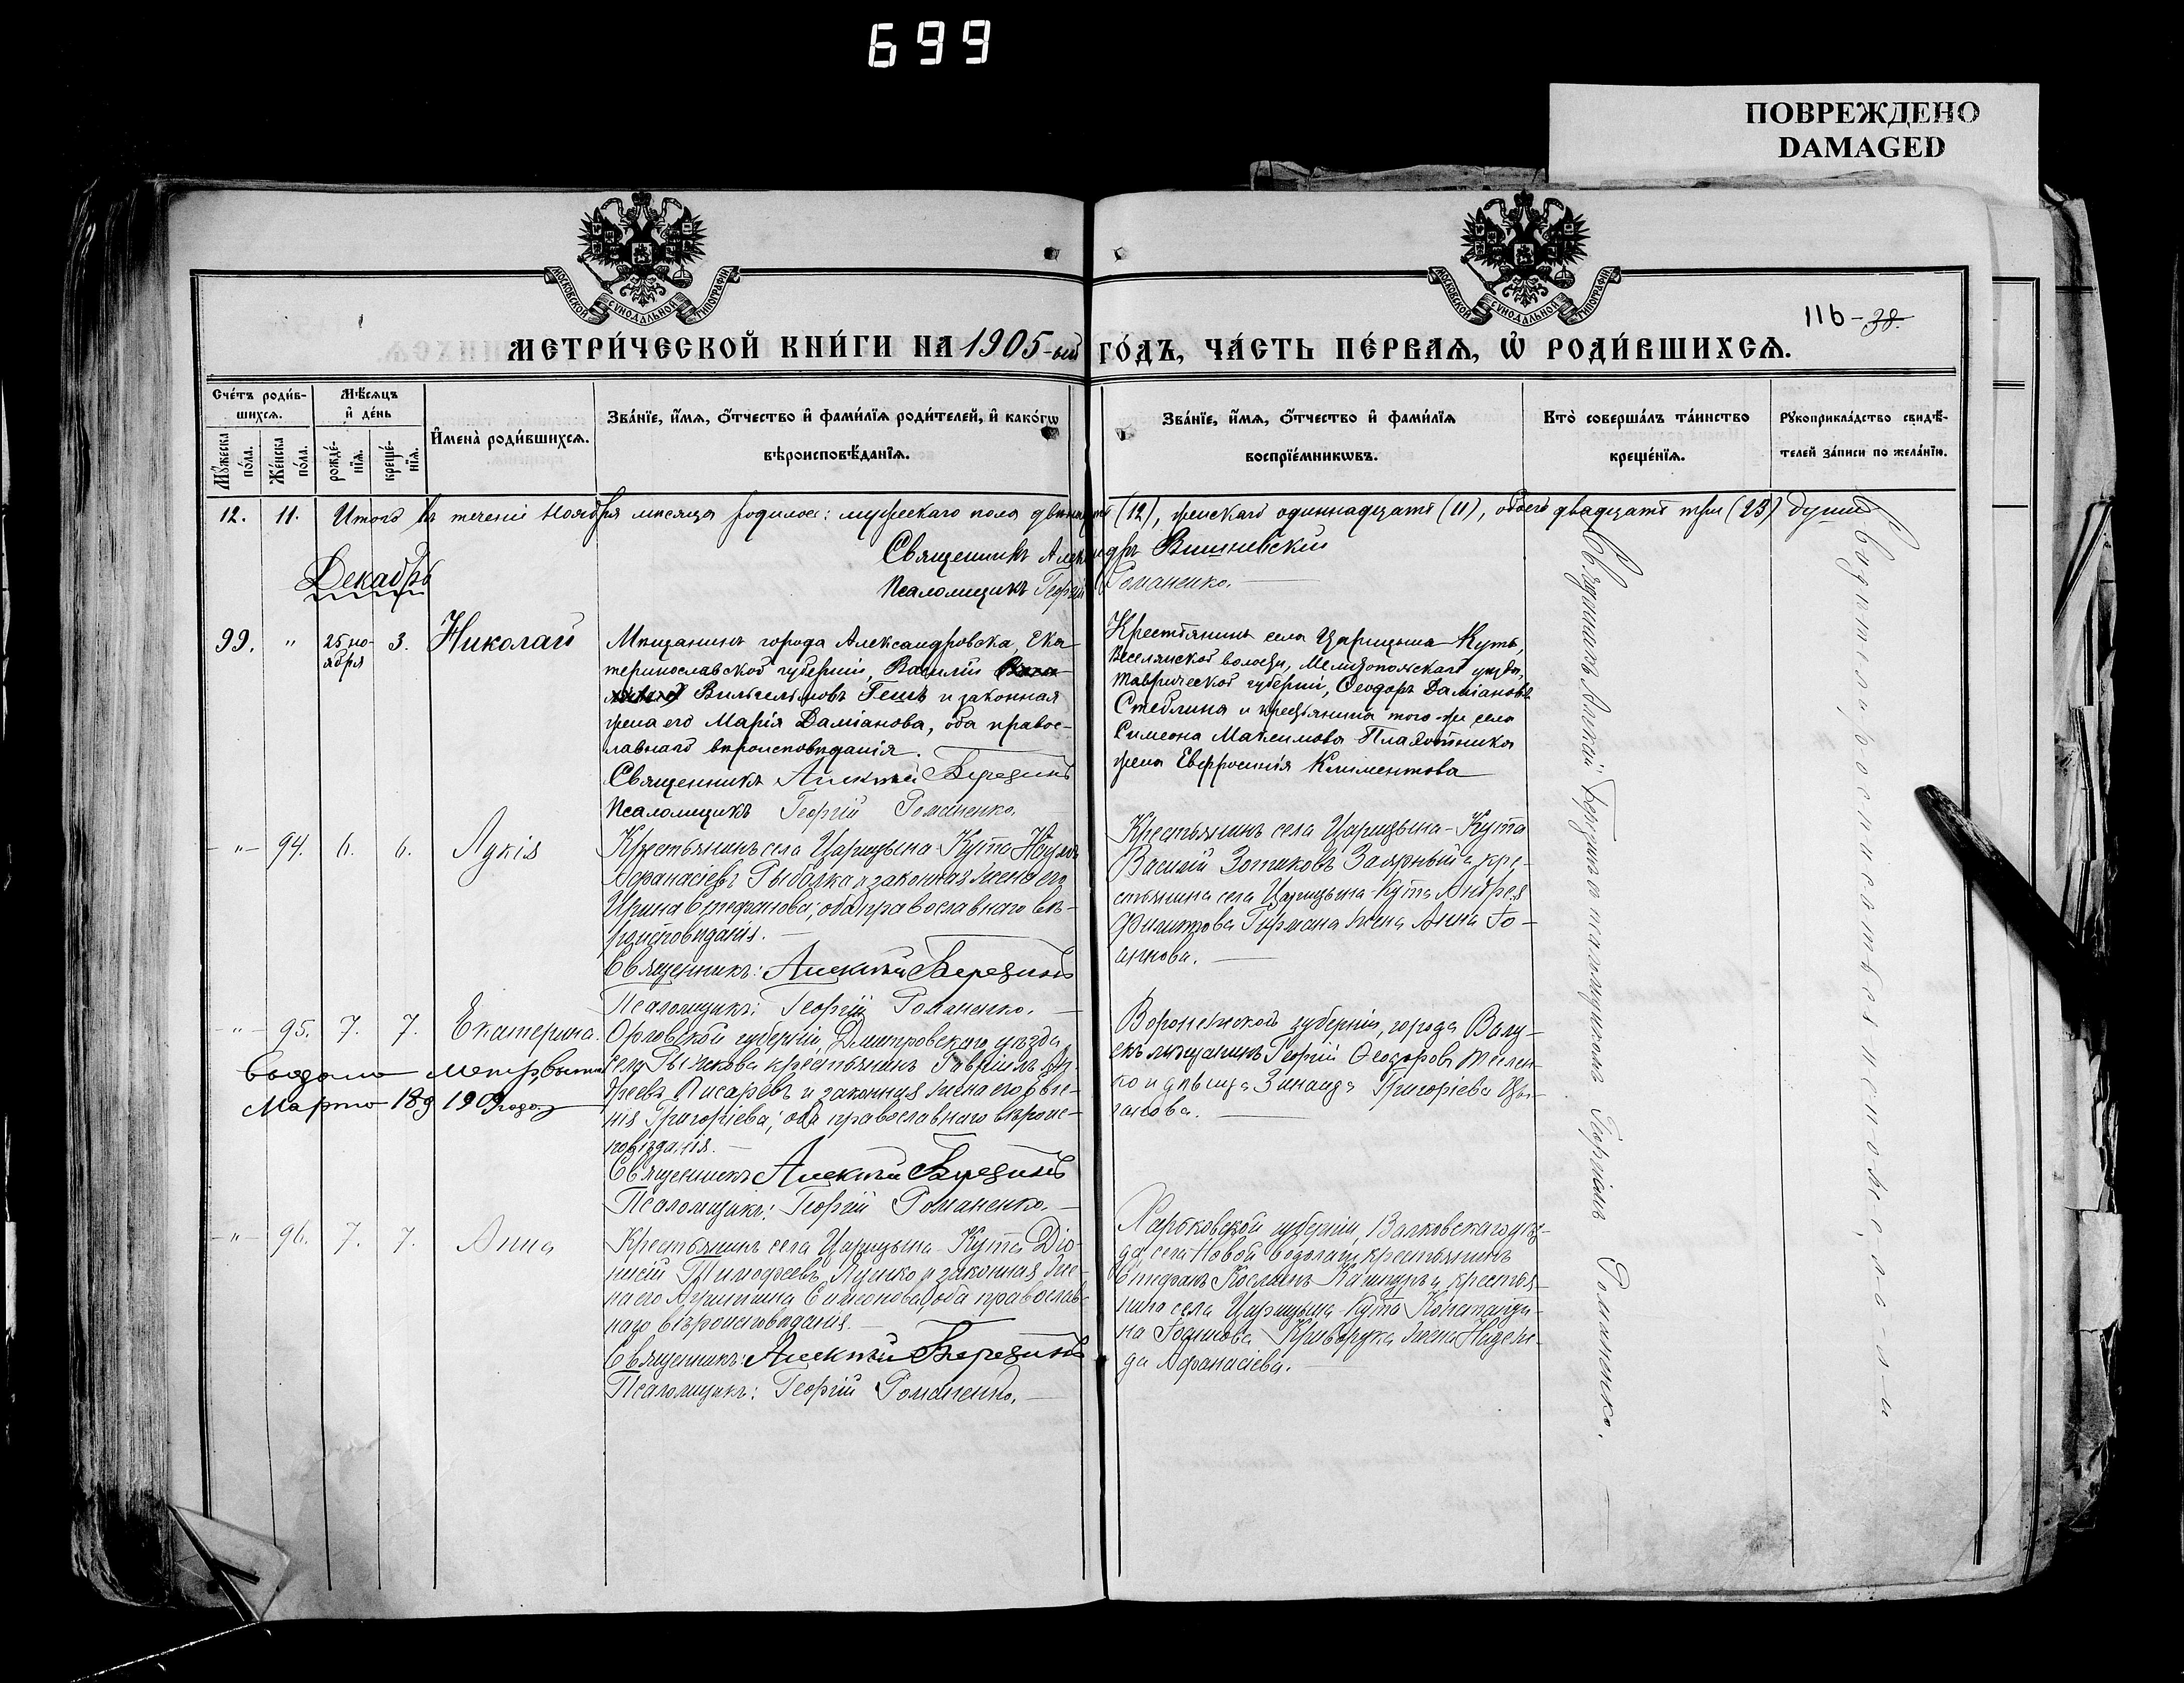 699
ПОВРЕЖДЕНО
DAMAGED
МОСКОВСКОЙ СѴНОДАЛЬНОЙ ТИПОГРАФІИ
МОСКОВСКОЙ СѴНОДАЛЬНОЙ ТИПОГРАФІИ
116 - 38.
МЕТРИ́ЧЕСКОЙ КНИ́ГИ НА 1905-ый ГО́ДЪ, ЧА́СТЬ ПЕ́РВАѦ, Ѡ҆ РОДИ́ВШИХСѦ.
Сче́тъ роди́в-
шихсѧ.
Мѣ́сѧцъ
и҆ де́нь
Мꙋ́жеска
по́ла.
Же́нска
по́ла.
рожде́-
нїѧ.
креще́-
нїѧ.
И҆мена̀ роди́вшихсѧ.
Зва́нїе, и҆́мѧ, ѻ҆́тчество и҆ фами́лїѧ роди́телей, и҆ како́гѡ
вѣроисповѣ́данїѧ.
Зва́нїе, и҆́мѧ, ѻ҆́тчество и҆ фами́лїѧ
воспрїе́мникѡвъ.
Кто̀ соверша́лъ та́инство
креще́нїѧ.
Рꙋкоприкла́дство свидѣ́-
телей за́писи по жела́нїю.
12. 11. Итого въ теченіи Ноября мѣсяца родилось: мужескаго пола двѣнадцать (12), женскаго одиннадцать (11), обоего двадцать три (23) души
Священникъ Александръ Вишневскій
Декабрь
Псаломщикъ Георгій Романенко.
99. " 25 но-
ября 3. Николай
Мѣщанинъ города Александровска, Ека-
теринославской губерніи, Василій
Вильгельмовъ Гешъ и законная
жена его Марія Даміанова, оба правос-
лавнаго вѣроисповѣданія.
Священникъ Алексѣй Березинъ
Псаломщикъ Георгій Романенко.
Крестьянинъ села Царицына-Кутъ,
Веселянской волости, Мелитопольскаго уѣзда,
Таврической губерніи, Ѳеодоръ Даміановъ
Стеблина и крестьянина того-же села
Симеона Максимова Плахотника
жена Евфросинія Климентова
-"- 94. 6. 6. Лукія
Крестьянинъ села Царицына-Кута Наумъ
Аѳанасіевъ Рыбалка и законная жена его
Ирина Стефанова; оба православнаго вѣ-
роисповѣданія.
Священникъ: Алексѣй Березинъ
Псаломщикъ: Георгій Романенко.
Крестьянинъ села Царицына-Кута
Василій Зотиковъ Заярный и кре-
стьянина села Царицына-Кута Андрея
Филиппова Гирмана жена Анна Іо-
аннова.
-"- 95. 7. 7. Екатерина.
Выдана метр. выпись
Марта 18 д 1909 года
Орловской губерніи, Дмитровскаго уѣзда
села Бычкова крестьянинъ Гавріилъ Ан-
дреевъ Писаревъ и законная жена его Евге-
нія Григоріева; оба православнаго вѣроис-
повѣданія.
Священникъ Алексѣй Березинъ
Псаломщикъ: Георгій Романенко.
Воронежской губерніи, города Валу-
екъ мѣщанинъ Георгій Ѳеодоровъ
и дѣвица Зинаида Григоріева Цы-
ганова.
-"- 96. 7. 7. Анна
Крестьянинъ села Царицына-Кута Діо-
нисій Тимоѳеевъ Луценко и законная же-
на его Агриппина Симеонова; оба православ-
наго вѣроисповѣданія.
Священникъ: Алексѣй Березинъ
Псаломщикъ: Георгій Романенко.
Харьковской губерніи, Валковскаго уѣз-
да, села Новой Водолаги, крестьянинъ
Стефанъ и крестья-
нина села Царицына-Кута Константи-
на Іоаннова Криворука жена Надеж-
да Аѳанасіева.
Священникъ Алексѣй Березинъ с псаломщикомъ Георгіемъ Романенко.